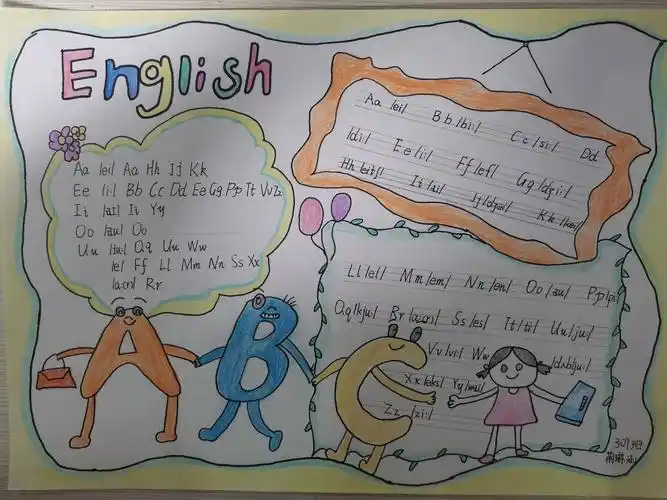 English
Aa /ei/ Aa Hh Jj Kk
Ee /i:/ Bb Cc Dd Ee Gg Pp Tt Vv Zz
Ii /ai/ Ii Yy
Oo /əu/ Oo
Uu /ju:/ Qq Uu Ww
/e/ Ff Ll Mm Nn Ss Xx
/a:(r)/ Rr
Aa /ei/ Bb /bi:/ Cc /si:/ Dd
/di:/ Ee /i:/ Ff /ef/ Gg /dʒi:/
Hh /eitʃ/ Ii /ai/ Jj /dʒei/ Kk /kei/
Ll /el/ Mm /em/ Nn /en/ Oo /əu/ Pp /pi:/
Qq /kju:/ Rr /a:(r)/ Ss /es/ Tt /ti:/ Uu /ju:/
Vv /vi:/ Ww /dʌblju:/
Xx /eks/ Yy /wai/
Zz /zi:/
309班